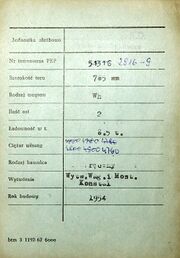 Jednostka służbowa
Nr inwentarza PKP 51316 2816-9
Szerokość toru 785 mm
Rodzaj wagonu Wh
Ilość osi 2
Ładowność w t. 6,5 t.
Ciężar własny
4900 4740
Rodzaj hamulca ręczny
Wytwórnia Wytw.Wag.i Most.
Konstal
Rok budowy 1954